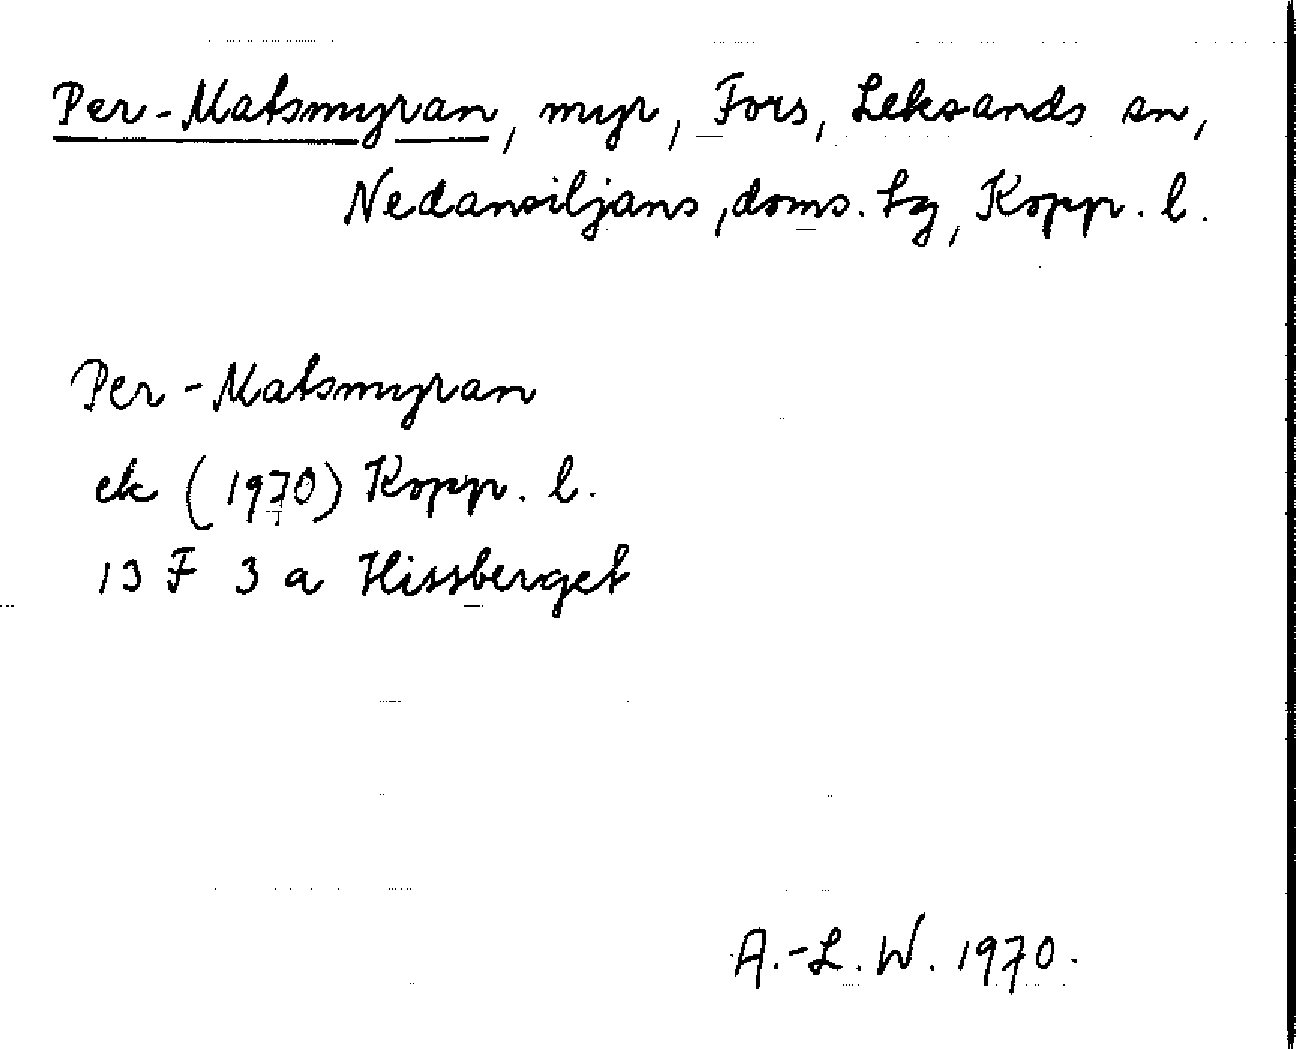 Per-Matsmyran, myr, Fors, Leksands sn,
Nedansiljans, doms. tg, Kopp. l.
Per-Matsmyran
ek (1970) Kopp. l.
13 F 3 a Hissberget
A.-L. W. 1970.